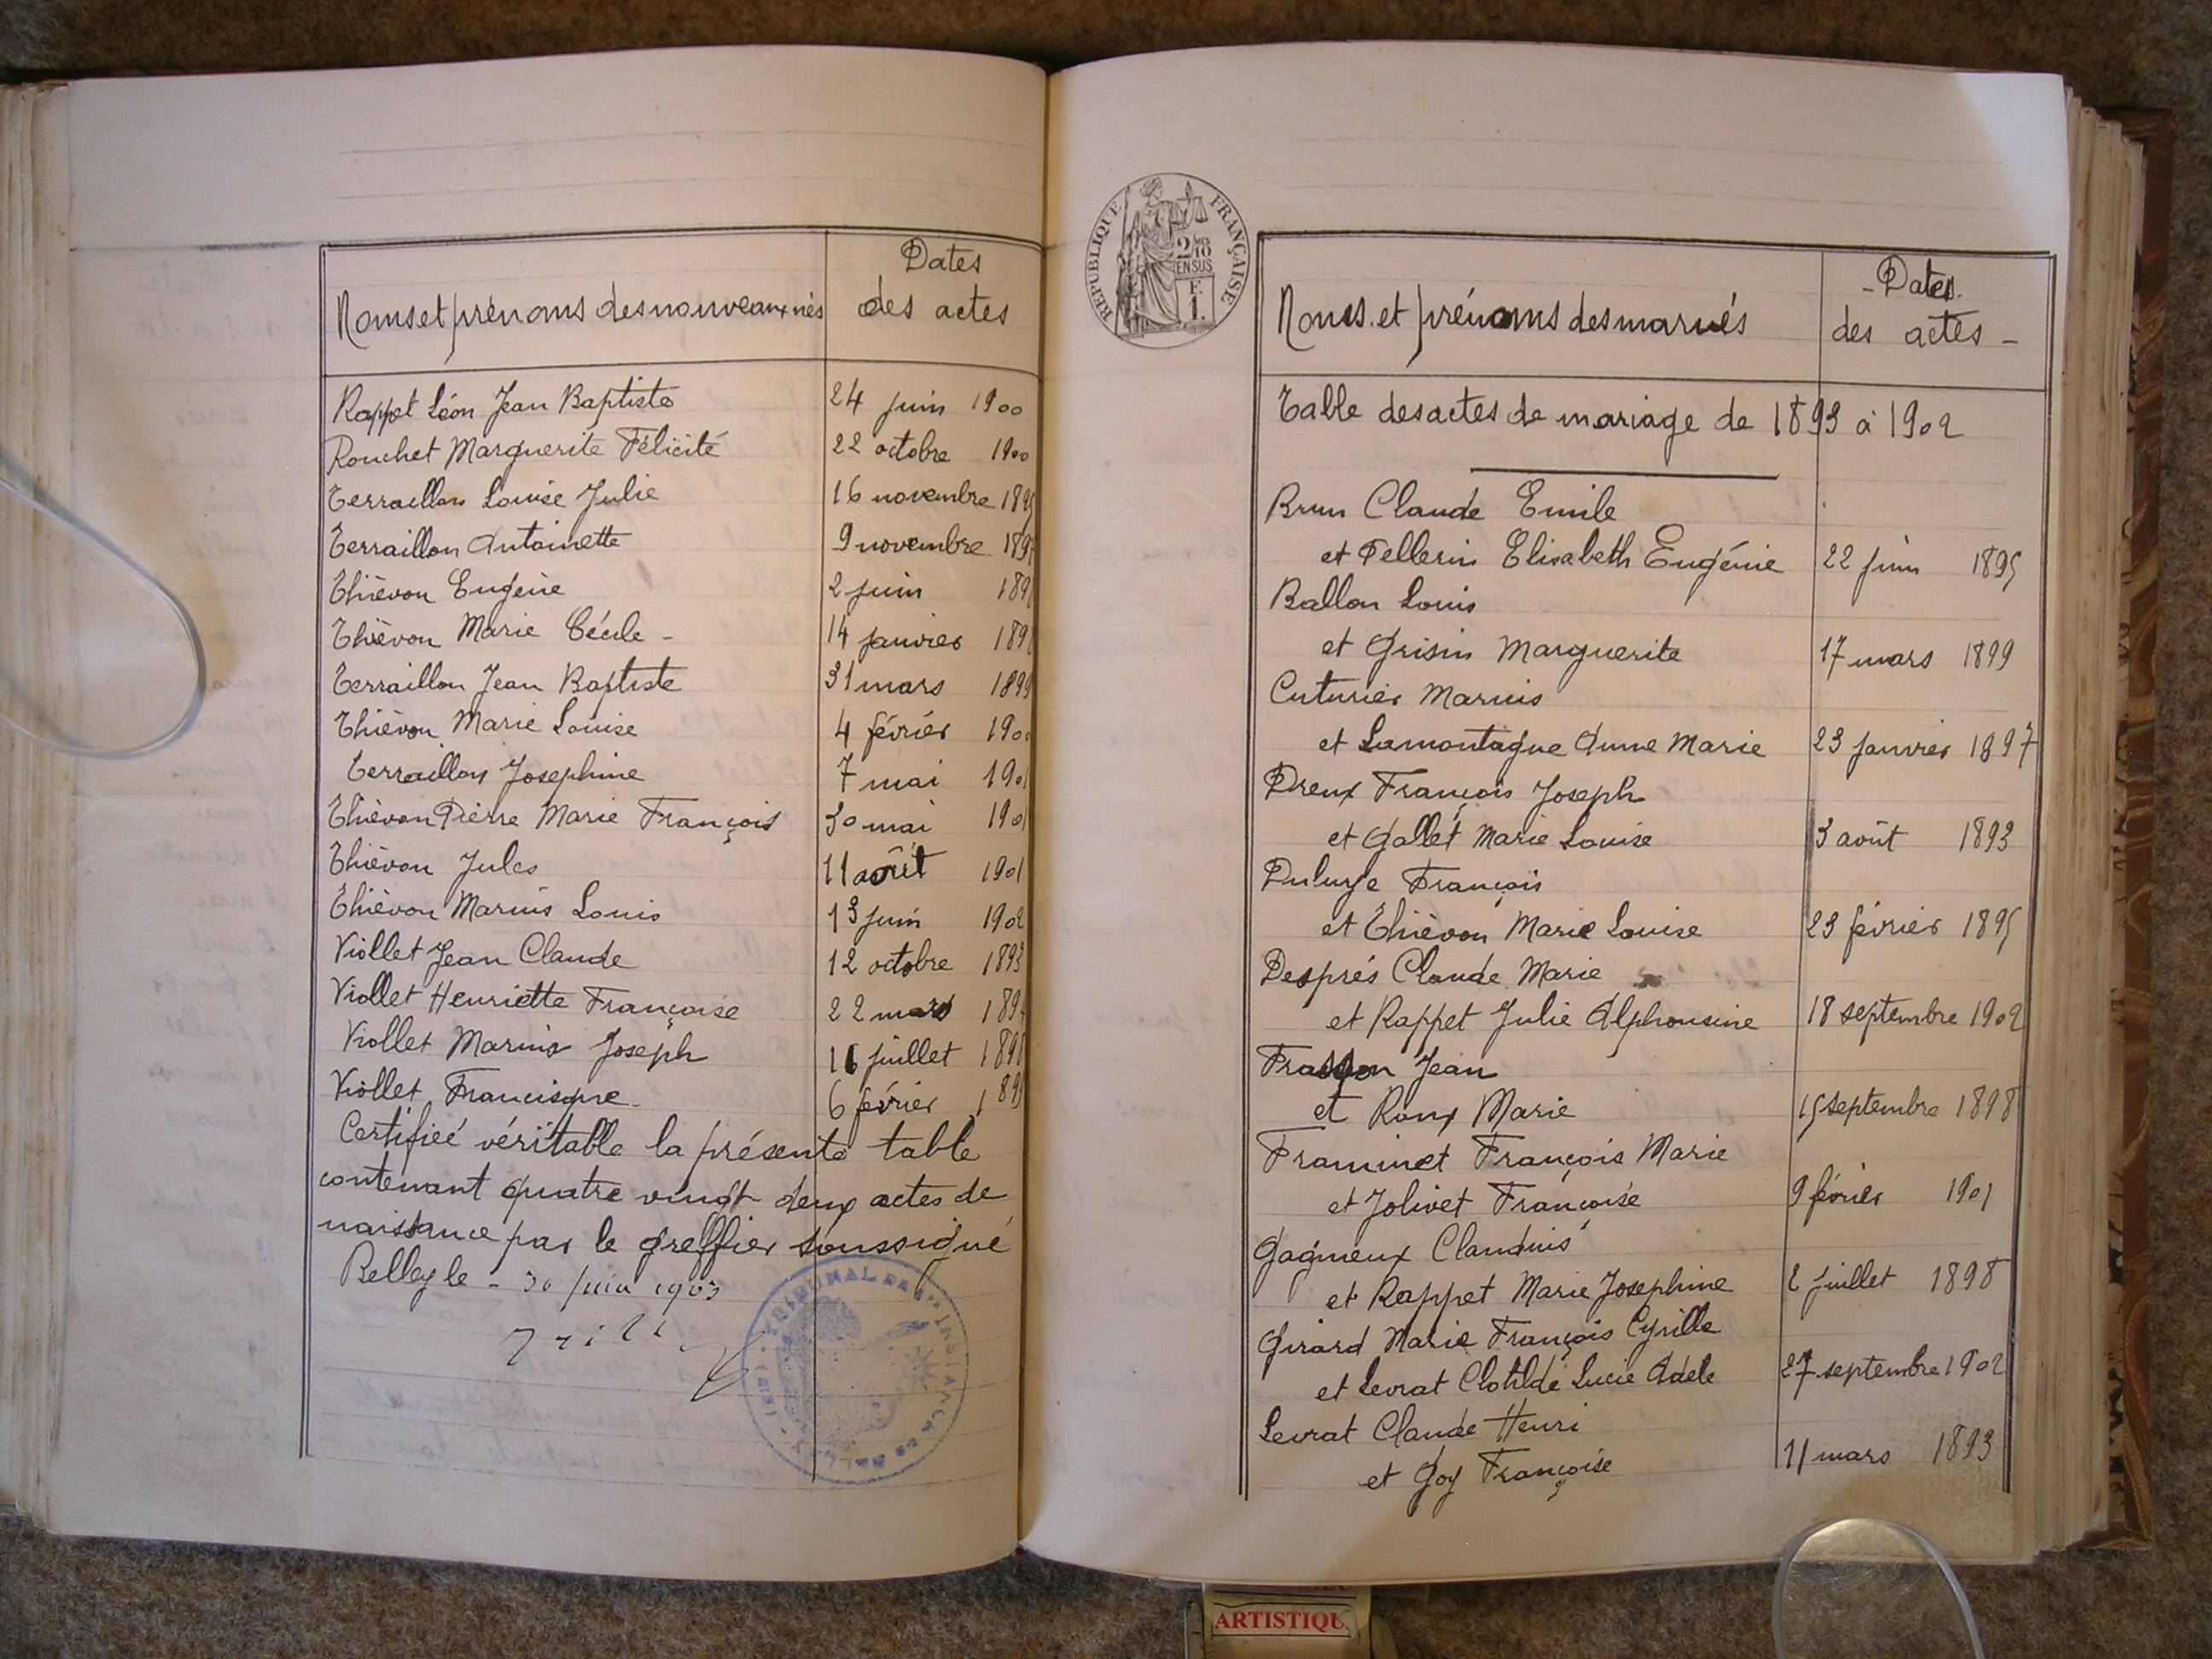 Noms et prénoms des nouveaux nés
Dates
des actes
Rappet Léon Jean Baptiste 24 juin 1900
Rouchet Marguerite Félicité 22 octobre 1900
Terraillon Louise Julie 16 novembre 1895
Terraillon Antoinette 9 novembre
Thiévon Eugène 2 juin
Thiévon Marie Cécile - 14 janvier
Terraillon Jean Baptiste 31 mars 1899
Thiévon Marie Louise 4 février 1900
Terraillon Josephine 7 mai 1901
Thiévon Pierre Marie François 30 mai 1901
Thiévon Jules 11 août 1901
Thiévon Marius Louis 13 juin 1902
Viollet Jean Claude 12 octobre 1893
Viollet Henriette Françoise 22 mars
Viollet Marius Joseph 16 juillet
Viollet Francisque 6 février
Certifiée véritable la présente table
contenant quatre vingt deux actes de
naissance par le greffier soussigné
Belley le - 30 juin 1903
TRIBUNAL DE 1re INSTANCE DE BELLEY (AIN)
RÉPUBLIQUE FRANÇAISE
2/10
EN SUS
F.
1.
Noms et prénoms des mariés
- Dates -
des actes -
Table des actes de mariage de 1893 à 1902
Brun Claude Emile
et Pellerin Elisabeth Eugénie 22 juin 1895
Ballon Louis
et Grisin Marguerite 17 mars 1899
Cuturier Marius
et Lamontagne Anne Marie 23 janvier 1897
Dreux François Joseph
et Gallet Marie Louise 3 août 1893
François
et Thiévon Marie Louise 23 février 1895
Després Claude Marie
et Rappet Julie Alphonsine 18 septembre 1902
Jean
et Roux Marie 15 septembre 1898
Framinet François Marie
et Jolivet Françoise 9 février 1901
Gagneux Claudius
et Rappet Marie Josephine 2 juillet 1898
Girard Marie François Cyrille
et Levrat Clotilde Lucie Adele 27 septembre 1902
Levrat Claude Henri
et Goy Françoise 11 mars 1893
ARTISTIQU